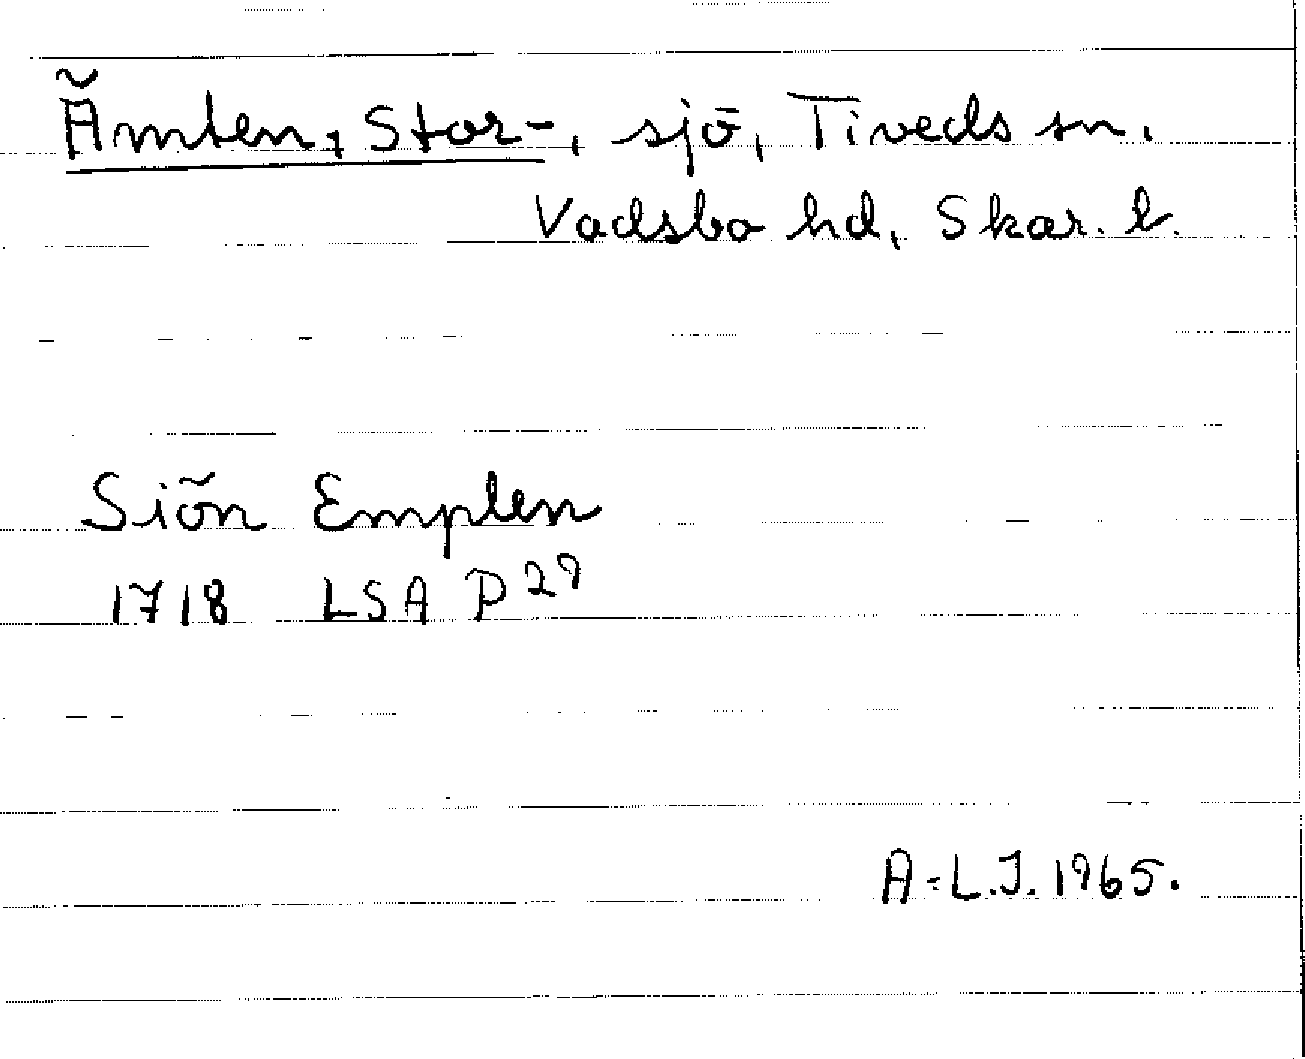 Ämten, Stor-, sjö, Tiveds sn.
Vadsbo hd, Skar. l.
Siön Emplen
1718 LSA P 29
A-L.J. 1965.